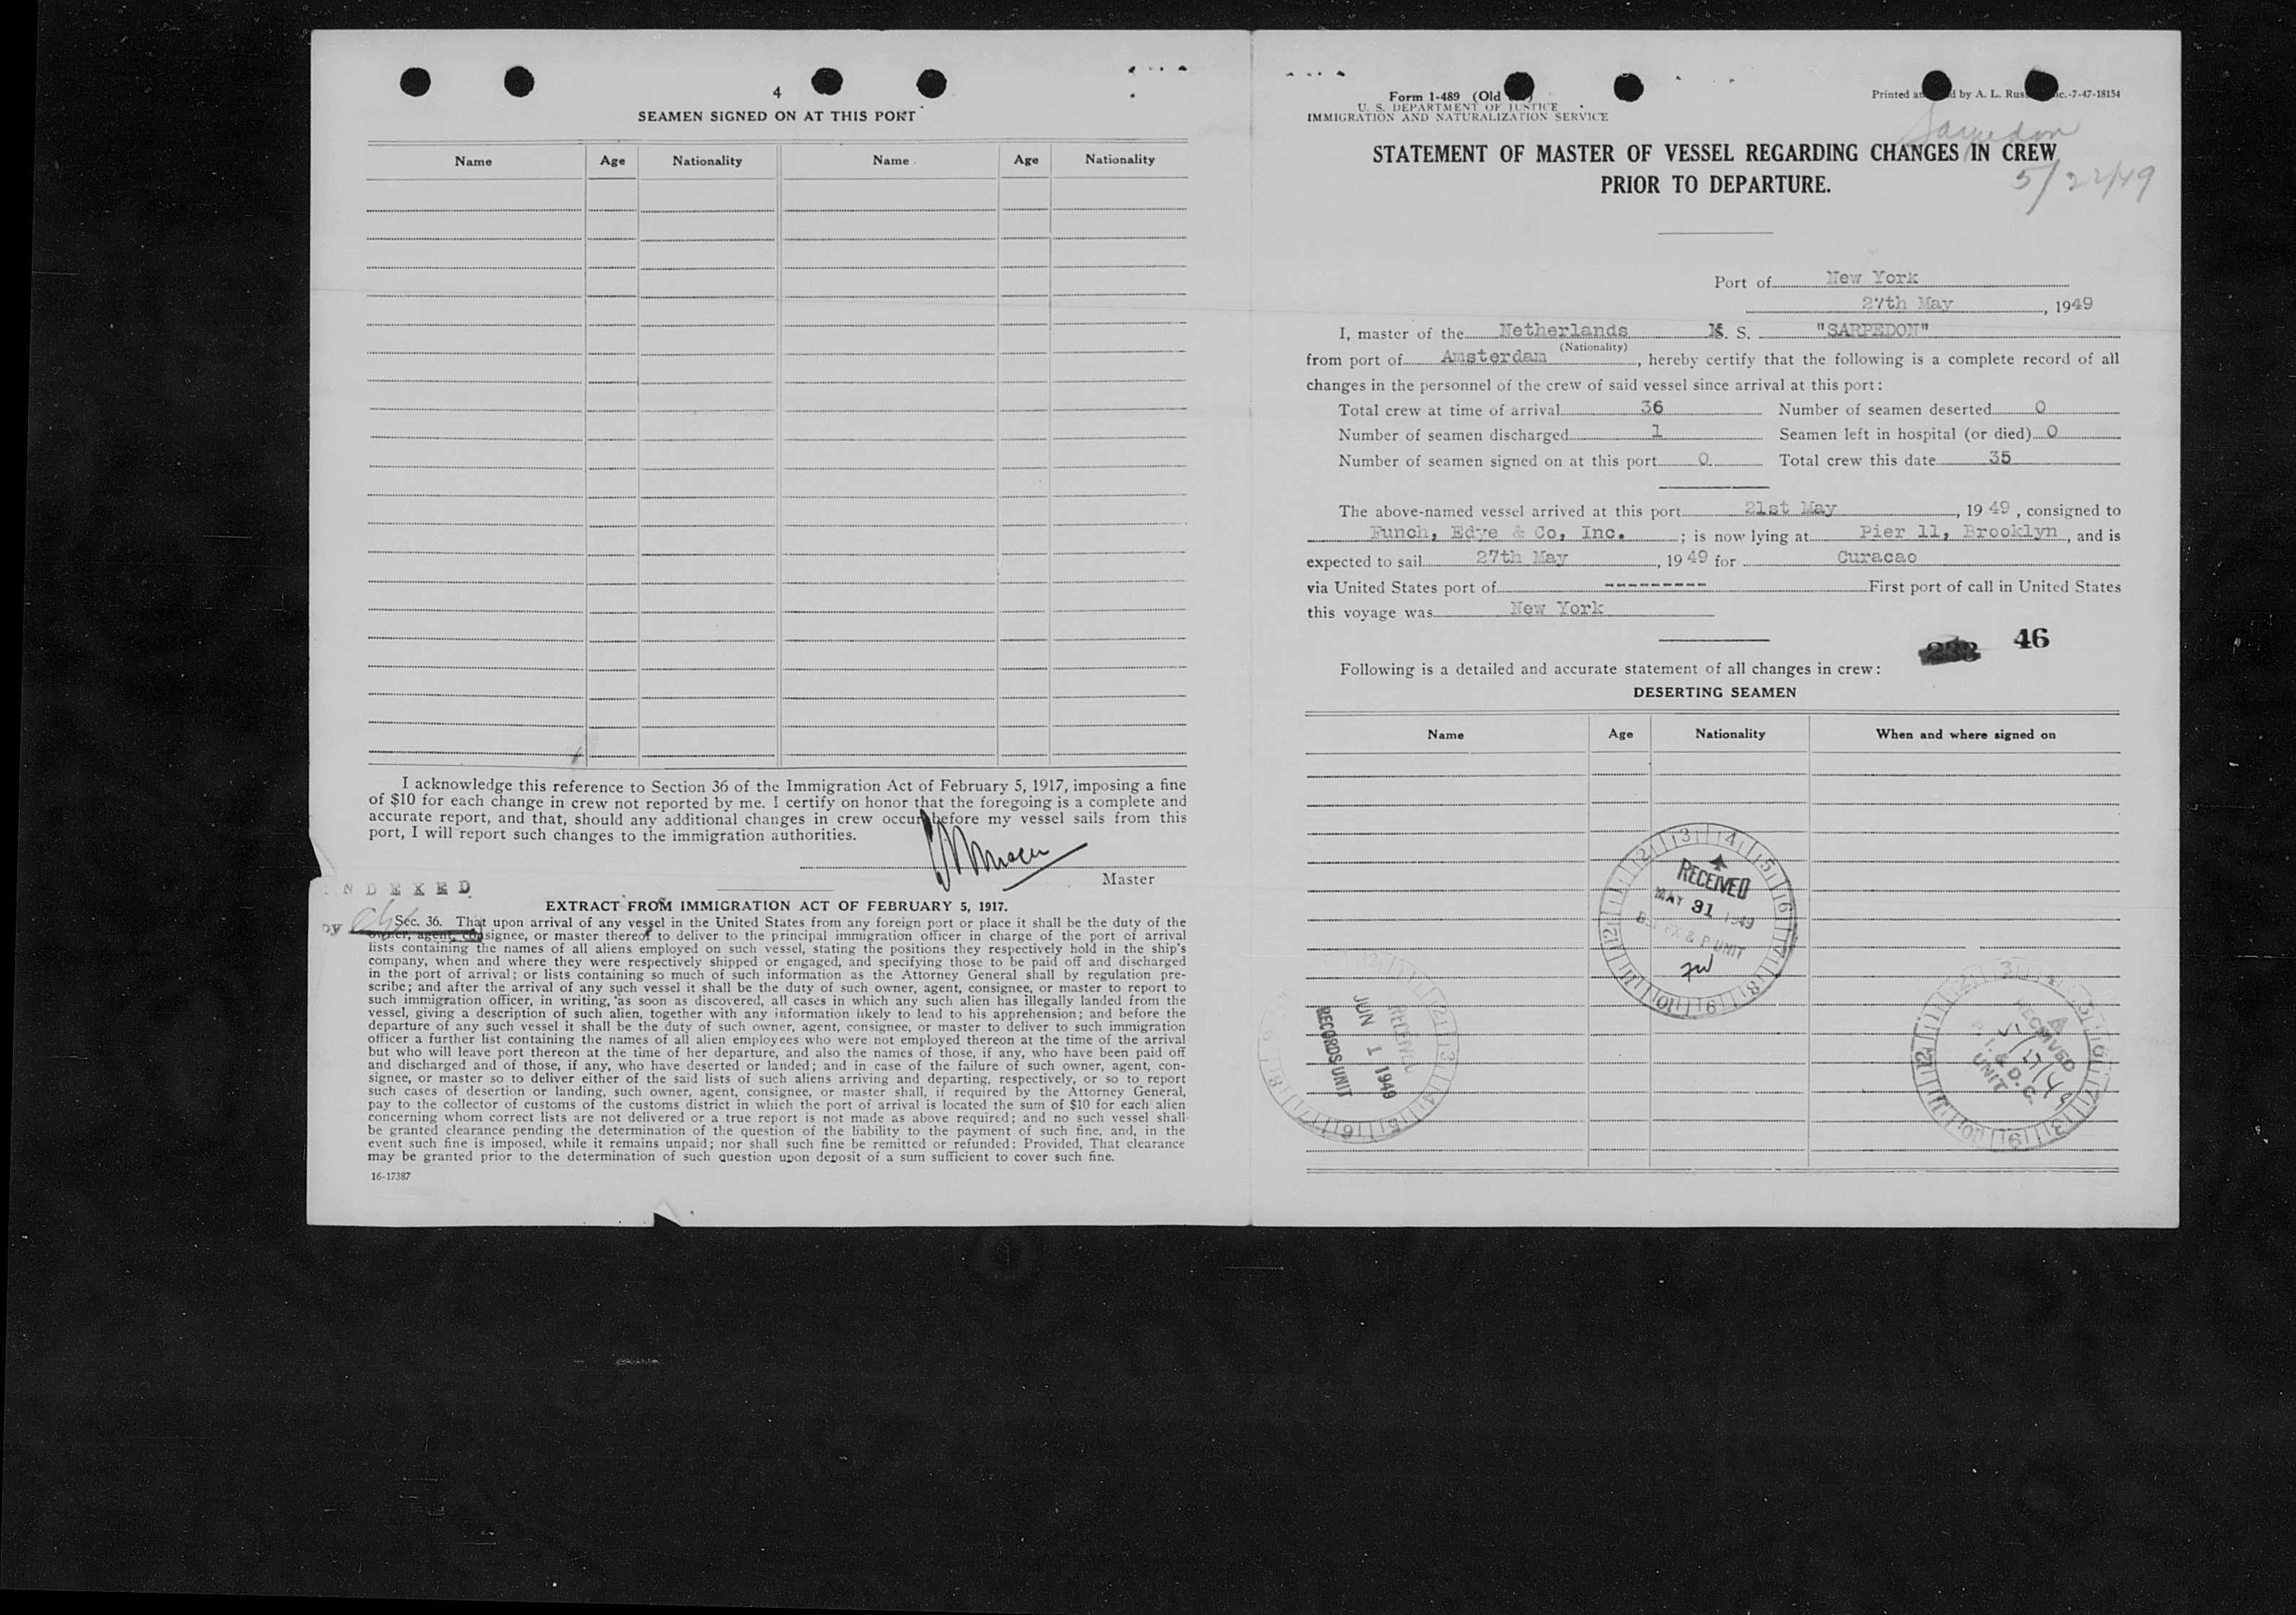 4
SEAMEN SIGNED ON AT THIS PORT
Name Age Nationality Name Age Nationality
I acknowledge this reference to Section 36 of the Immigration Act of February 5, 1917, imposing a fine
of $10 for each change in crew not reported by me. I certify on honor that the foregoing is a complete and
accurate report, and that, should any additional changes in crew occur before my vessel sails from this
port, I will report such changes to the immigration authorities.
Master
NDEXED
by
EXTRACT FROM IMMIGRATION ACT OF FEBRUARY 5, 1917.
Sec. 36. That upon arrival of any vessel in the United States from any foreign port or place it shall be the duty of the
owner, agent, consignee, or master thereof to deliver to the principal immigration officer in charge of the port of arrival
lists containing the names of all aliens employed on such vessel, stating the positions they respectively hold in the ship's
company, when and where they were respectively shipped or engaged, and specifying those to be paid off and discharged
in the port of arrival; or lists containing so much of such information as the Attorney General shall by regulation pre-
scribe; and after the arrival of any such vessel it shall be the duty of such owner, agent, consignee, or master to report to
such immigration officer, in writing, as soon as discovered, all cases in which any such alien has illegally landed from the
vessel, giving a description of such alien, together with any information likely to lead to his apprehension; and before the
departure of any such vessel it shall be the duty of such owner, agent, consignee, or master to deliver to such immigration
officer a further list containing the names of all alien employees who were not employed thereon at the time of the arrival
but who will leave port thereon at the time of her departure, and also the names of those, if any, who have been paid off
and discharged and of those, if any, who have deserted or landed; and in case of the failure of such owner, agent, con-
signee, or master so to deliver either of the said lists of such aliens arriving and departing, respectively, or so to report
such cases of desertion or landing, such owner, agent, consignee, or master shall, if required by the Attorney General,
pay to the collector of customs of the customs district in which the port of arrival is located the sum of $10 for each alien
concerning whom correct lists are not delivered or a true report is not made as above required; and no such vessel shall
be granted clearance pending the determination of the question of the liability to the payment of such fine, and, in the
event such fine is imposed, while it remains unpaid; nor shall such fine be remitted or refunded: Provided, That clearance
may be granted prior to the determination of such question upon deposit of a sum sufficient to cover such fine.
16-17387
Form 1-489 (Old
U. S. DEPARTMENT OF JUSTICE
IMMIGRATION AND NATURALIZATION SERVICE
Printed by A. L. 7-47-18154
Sarpedon
STATEMENT OF MASTER OF VESSEL REGARDING CHANGES IN CREW
PRIOR TO DEPARTURE.
5/22/49
Port of New York
27th May, 1949
I, master of the Netherlands M. S. "SARPEDON"
(Nationality)
from port of Amsterdam, hereby certify that the following is a complete record of all
changes in the personnel of the crew of said vessel since arrival at this port:
Total crew at time of arrival 36 Number of seamen deserted 0
Number of seamen discharged 1 Seamen left in hospital (or died) 0
Number of seamen signed on at this port 0 Total crew this date 35
The above-named vessel arrived at this port 21st May, 1949, consigned to
Funch, Edye & Co, Inc.; is now lying at Pier 11, Brooklyn, and is
expected to sail 27th May, 1949 for Curacao
via United States port of --------- First port of call in United States
this voyage was New York
46
Following is a detailed and accurate statement of all changes in crew:
DESERTING SEAMEN
Name Age Nationality When and where signed on
RECEIVED
MAY 31 1949
& P UNIT
RECEIVED
JUN 1 1949
RECORDS UNIT
RECEIVED
UNIT